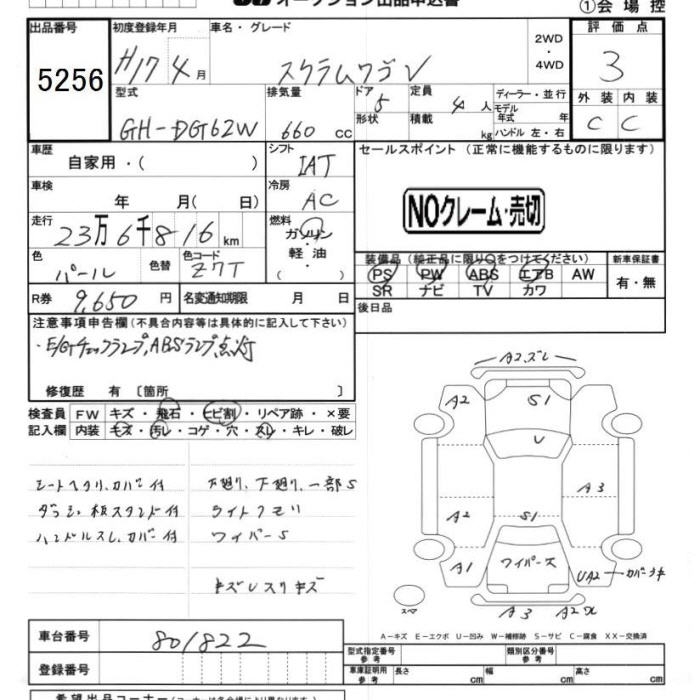 オークション出品申込書
①会 場 控
出品番号
5256
初度登録年月
H17 4 月
車名・グレード
スクラムワゴン
2WD
・
4WD
評 価 点
3
型式
GH-DG62W
排気量
660 cc
ドア
5
形状
定員
4 人
積載
kg
ディーラー・並行
モデル
年式 年
ハンドル 左・右
外 装 内 装
C C
車歴
自家用・( )
シフト
IAT
セールスポイント (正常に機能するものに限ります)
車検
年 月( 日)
冷房
AC
NOクレーム・売切
走行
23万6千816 km
燃料
ガソリン
軽 油
( )
色
パール
色替
色コード
Z7T
装備品 (純正品に限り○をつけてください)
PS PW ABS エアB AW
SR ナビ TV カワ
新車保証書
有・無
R券
9,650 円
名変通知期限 月 日
後日品
注意事項申告欄 (不具合内容等は具体的に記入して下さい)
・E/Gチェックランプ,ABSランプ点灯
修復歴 有 〔箇所 〕
検査員
記入欄
FW キズ・飛石・ヒビ割・リペア跡・×要
内装 キズ・汚レ・コゲ・穴・スレ・キレ・破レ
シートヘタリ,カバー付
ダッシュ板スタンド付
ハンドルスレ,カバー付
下廻り,下廻り,一部S
ライトクモリ
ワイパーS
キズレスリキズ
A2,ズレ
A2
S1
U
A3
A2
S1
A1
ワイパーズ
UA2
カバーナキ
スマ
A3
A2
A−キズ E−エクボ U−凹み W−補修跡 S−サビ C−腐食 XX−交換済
車台番号
801822
登録番号
型式指定番号
参 考
類別区分番号
参 考
車庫証明用
参 考
長さ cm
幅 cm
高さ cm
希望出品コーナー